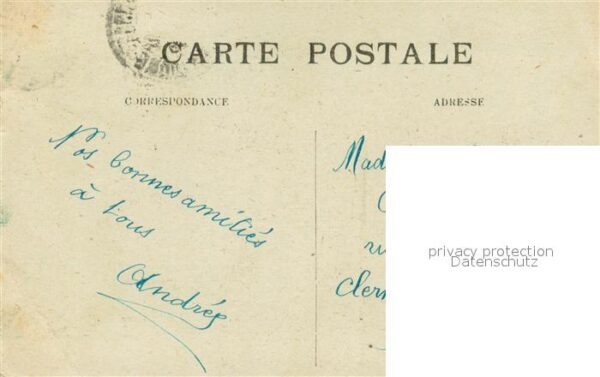 CARTE POSTALE
CORRESPONDANCE
ADRESSE
Nos bonnes amitiés
à tous
Andrée
Mad
Clerm
privacy protection
Datenschutz